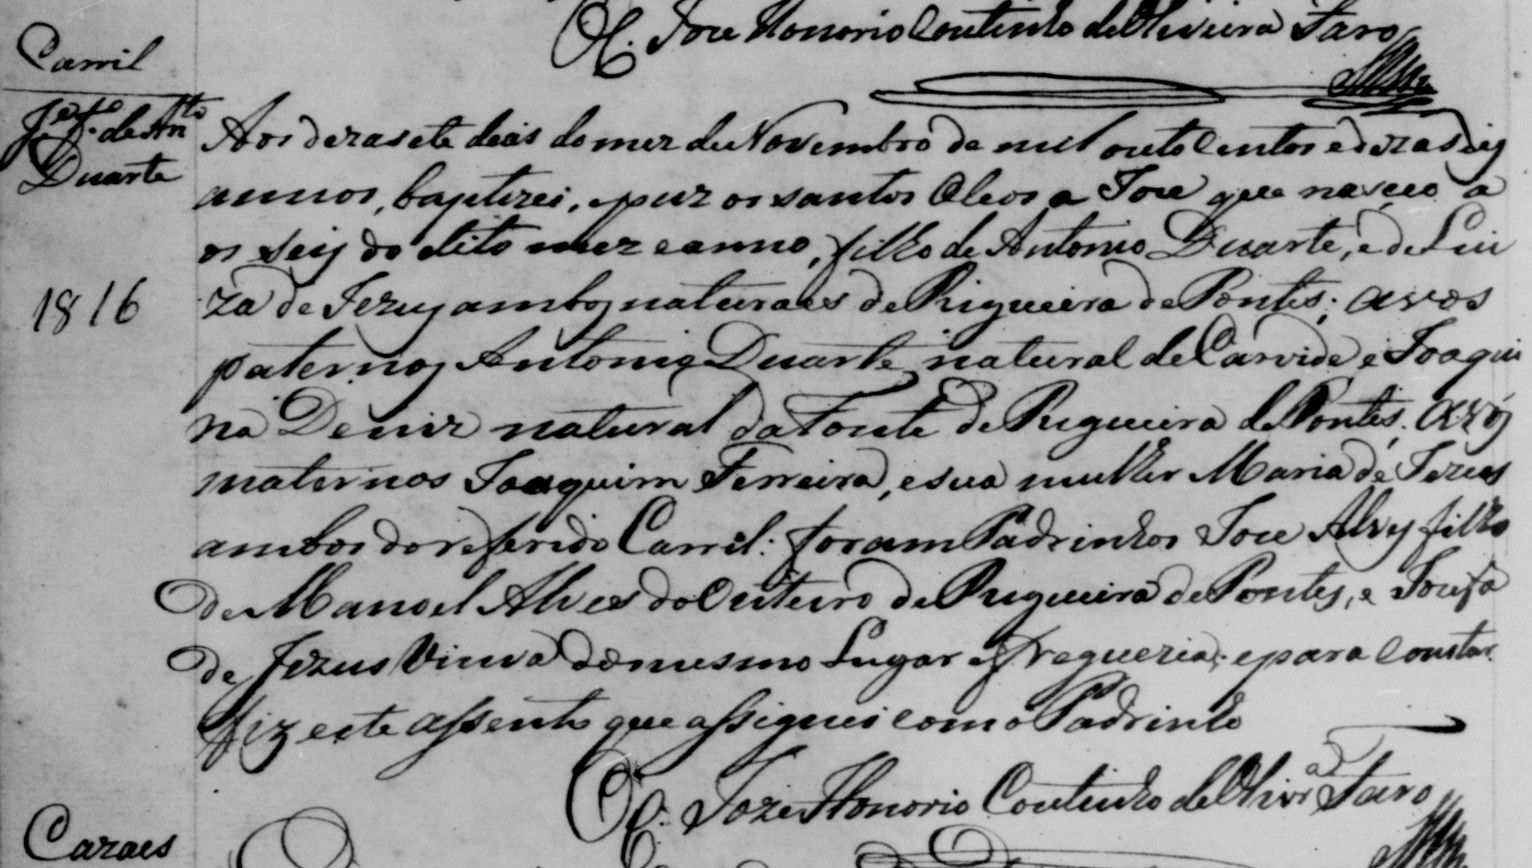 O C. Joze Honorio Coutinho de Oliveira Faro
Carril
Joze f.º de Ant.º
Duarte
1816
Aos dezasete dias do mez de Novembro de mil outo centos e dezaseiz
annos, baptizei, e puz os santos Oleos a Joze que nasceo a
os seiz do dito mez e anno, filho de Antonio Duarte, e de Lui
za de Jezuz ambos naturaes de Rigueira de Pontes; avos
paternos Antonio Duarte natural de Carvide e Joaqui
na Deniz natural da Fonte de Rigueira de Pontes. avóz
maternos Joaquim Ferreira, e sua mulher Maria de Jezus
ambos do referido Carril: foram Padrinhos Joze Alvez filho
de Manoel Alves do Outeiro de Rigueira de Pontes, e Joze fa
de Jezus Viuva do mesmo Lugar e freguezia; e para constar
fiz este assento que assignei com o Padrinho
O C. Joze Honorio Coutinho de Olivr.ª Faro
Cazaes